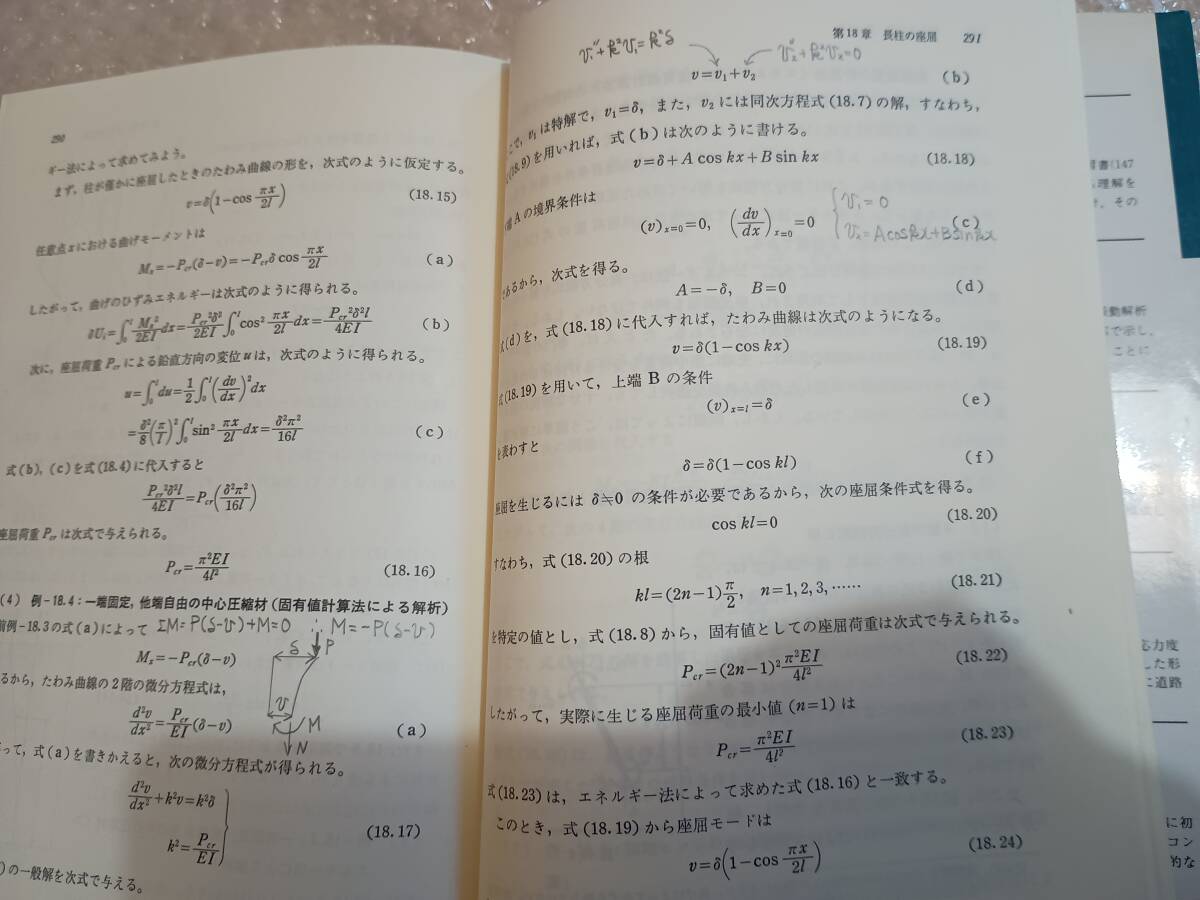 290
ギー法によって求めてみよう。
まず,柱が僅かに座屈したときのたわみ曲線の形を,次式のように仮定する。
v=δ(1−cos πx/2l) (18.15)
任意点xにおける曲げモーメントは
Mx=−Pcr(δ−v)=−Pcrδcos πx/2l (a)
したがって,曲げのひずみエネルギーは次式のように得られる。
∂Ui=∫₀ˡ Mx²/2EI dx=Pcr²δ²/2EI ∫₀ˡ cos² πx/2l dx=Pcr²δ²l/4EI (b)
次に,座屈荷重Pcrによる鉛直方向の変位uは,次式のように得られる。
u=∫₀ˡ du=1/2 ∫₀ˡ (dv/dx)² dx
=δ²/8 (π/l)² ∫₀ˡ sin² πx/2l dx=δ²π²/16l (c)
式(b),(c)を式(18.4)に代入すると
Pcr²δ²l/4EI=Pcr(δ²π²/16l)
座屈荷重Pcrは次式で与えられる。
Pcr=π²EI/4l² (18.16)
(4) 例-18.4:一端固定,他端自由の中心圧縮材(固有値計算法による解析)
前例-18.3の式(a)によって ΣM=P(δ−v)+M=0 ∴ M=−P(δ−v)
Mx=−Pcr(δ−v)
δ P
v M
N
るから,たわみ曲線の2階の微分方程式は,
d²v/dx²=Pcr/EI (δ−v) (a)
って,式(a)を書きかえると,次の微分方程式が得られる。
d²v/dx²+k²v=k²δ
k²=Pcr/EI (18.17)
)の一般解を次式で与える。
第18章 長柱の座屈 291
v₁″+k²v₁=k²δ v₂″+k²v₂=0
v=v₁+v₂ (b)
こで,v₁は特解で,v₁=δ,また,v₂には同次方程式(18.7)の解,すなわち,
(18.9)を用いれば,式(b)は次のように書ける。
v=δ+A cos kx+B sin kx (18.18)
端Aの境界条件は
(v)x=0=0, (dv/dx)x=0=0 (c)
v₁=0
v₂=Acoskx+Bsinkx
であるから,次式を得る。
A=−δ, B=0 (d)
式(d)を,式(18.18)に代入すれば,たわみ曲線は次式のようになる。
v=δ(1−cos kx) (18.19)
式(18.19)を用いて,上端Bの条件
(v)x=l=δ (e)
を表わすと
δ=δ(1−cos kl) (f)
座屈を生じるには δ≒0 の条件が必要であるから,次の座屈条件式を得る。
cos kl=0 (18.20)
すなわち,式(18.20)の根
kl=(2n−1)π/2, n=1,2,3,…… (18.21)
を特定の値とし,式(18.8)から,固有値としての座屈荷重は次式で与えられる。
Pcr=(2n−1)² π²EI/4l² (18.22)
したがって,実際に生じる座屈荷重の最小値(n=1)は
Pcr=π²EI/4l² (18.23)
式(18.23)は,エネルギー法によって求めた式(18.16)と一致する。
このとき,式(18.19)から座屈モードは
v=δ(1−cos πx/2l) (18.24)
書(147
理解を
その
動解析
で示し,
ことに
応力度
した形
に道路
に初
コン
的な